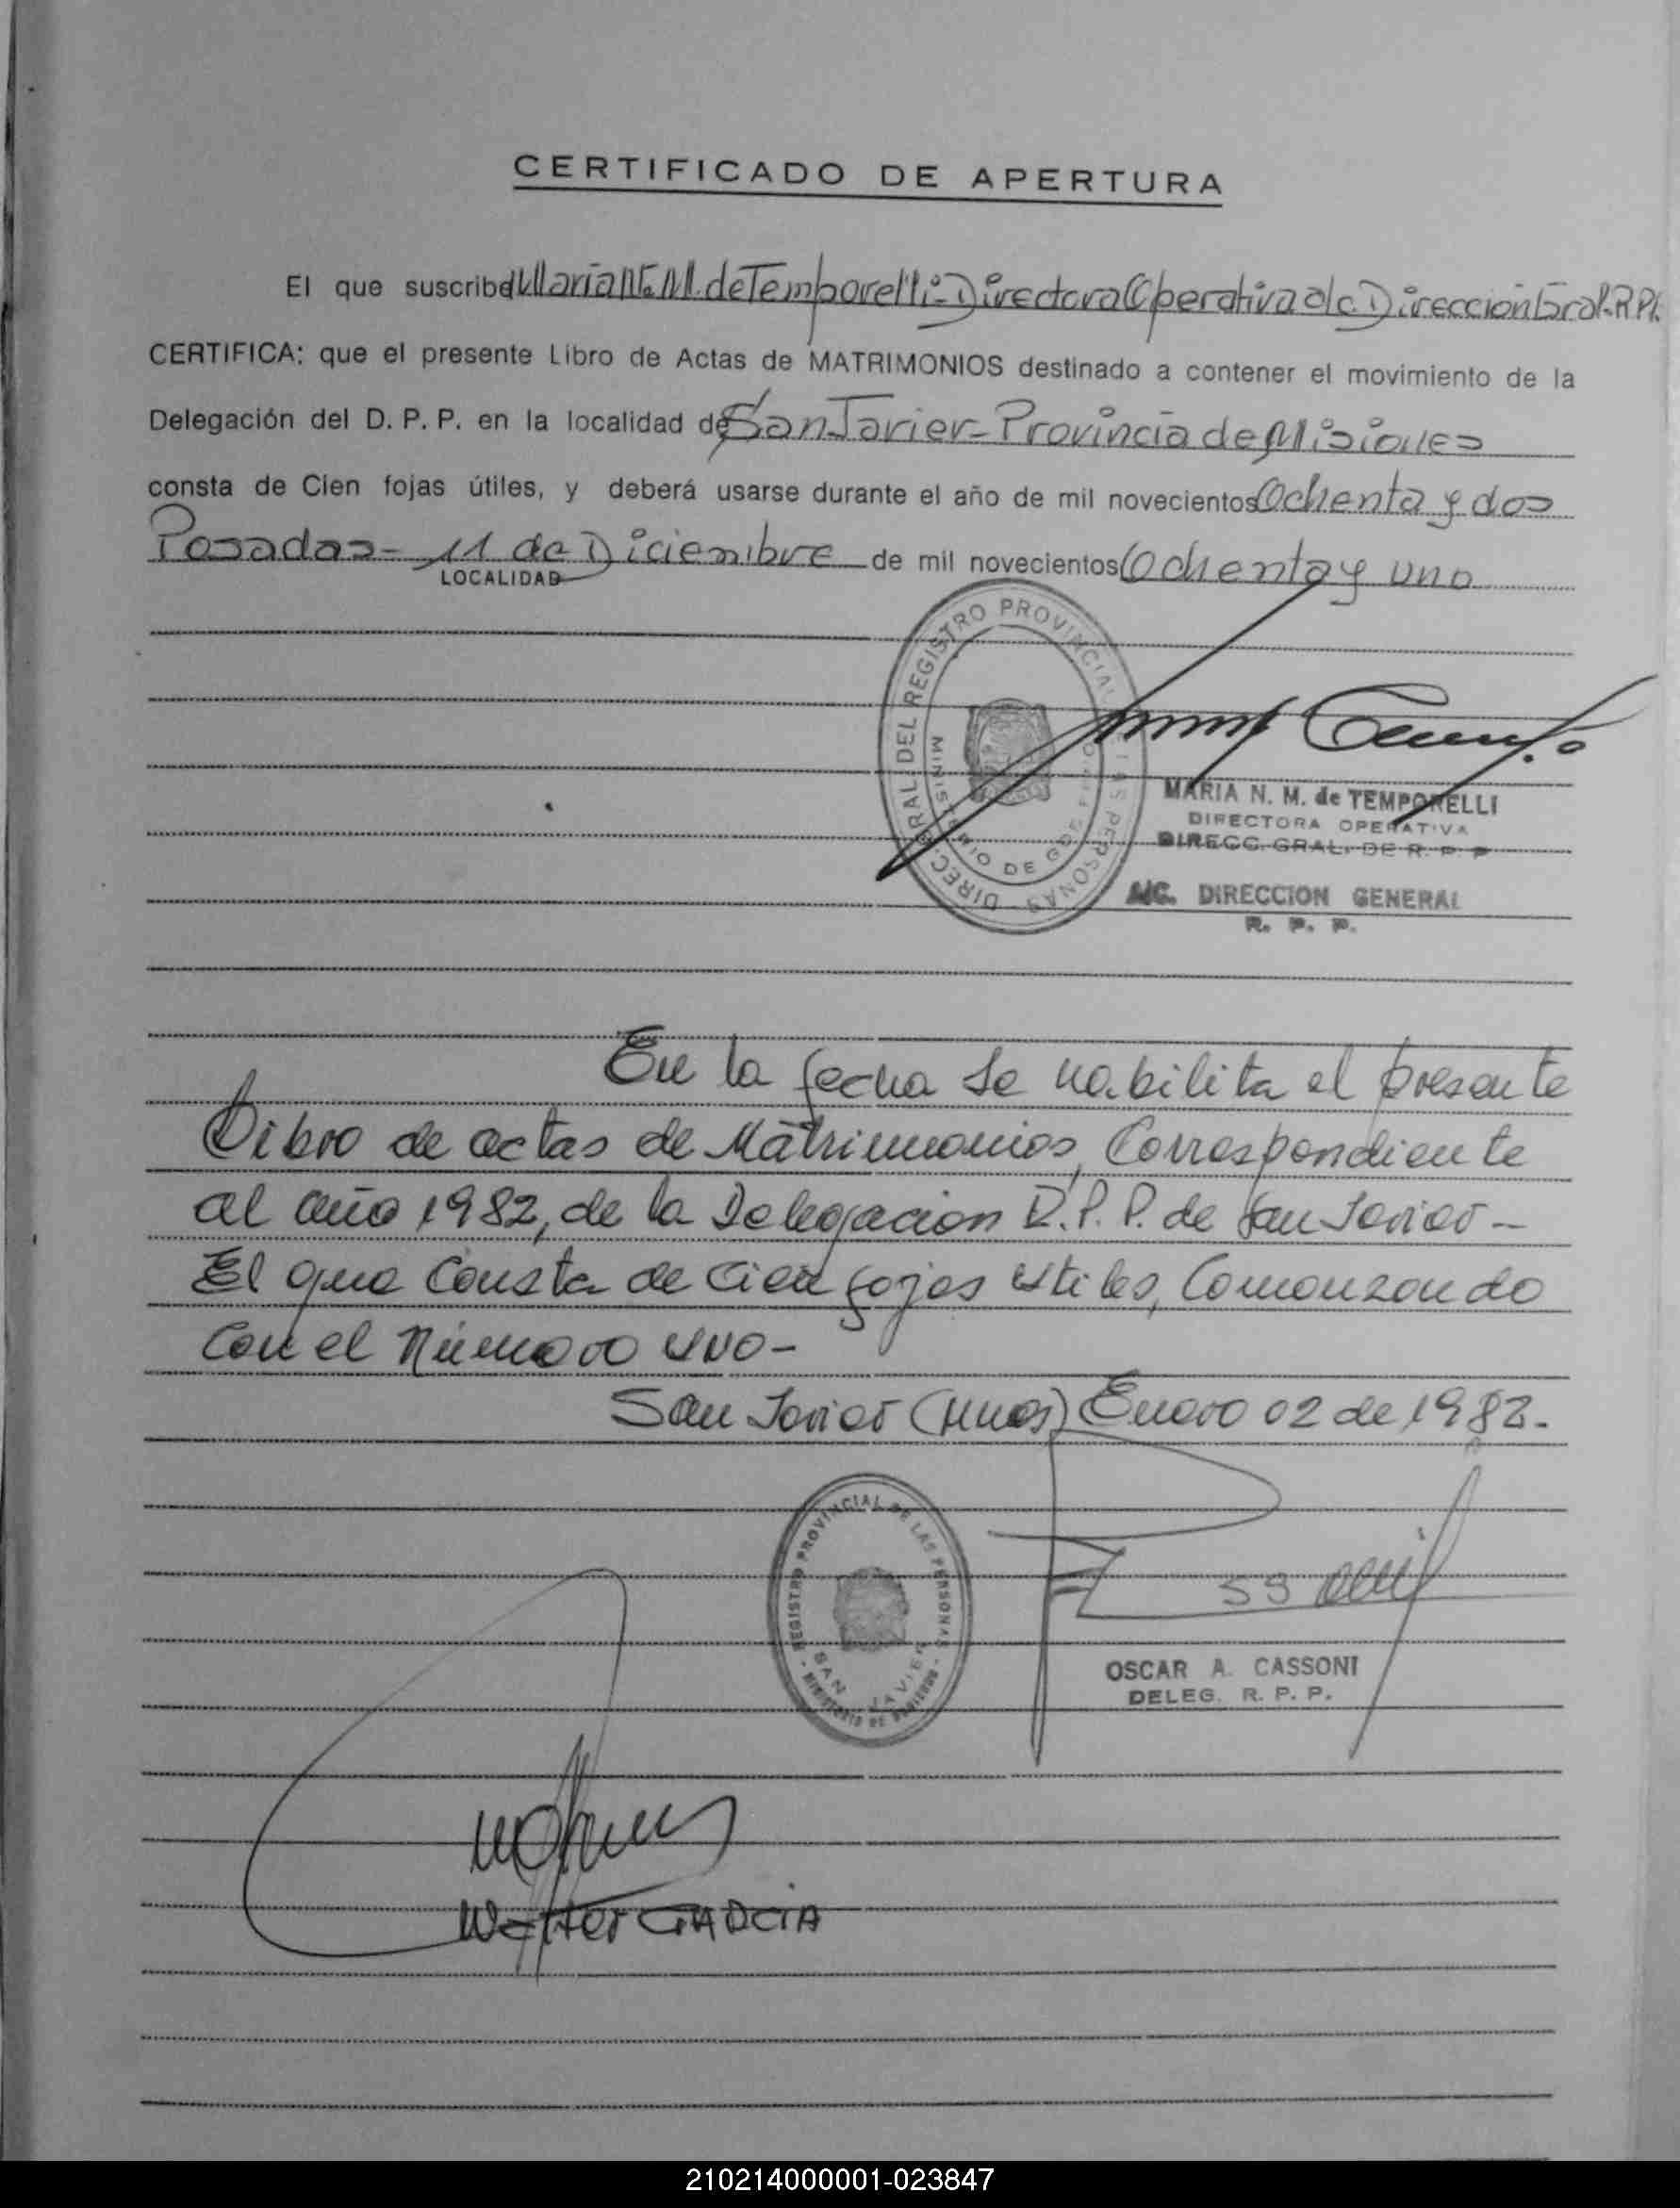 CERTIFICADO DE APERTURA
El que suscribe María N. M. de Temporelli - Directora Operativa a/c. Dirección Gral. R.P.P.
CERTIFICA: que el presente Libro de Actas de MATRIMONIOS destinado a contener el movimiento de la
Delegación del D. P. P. en la localidad de San Javier - Provincia de Misiones
consta de Cien fojas útiles, y deberá usarse durante el año de mil novecientos Ochenta y dos
Posadas - 11 de Diciembre de mil novecientos Ochenta y uno
LOCALIDAD
DIREC. GRAL. DEL REGISTRO PROVINCIAL DE LAS PERSONAS
MINISTERIO DE GOBIERNO
MARIA N. M. de TEMPORELLI
DIRECTORA OPERATIVA
DIRECC. GRAL. DE R. P. P
A/C. DIRECCION GENERAL
R. P. P.
En la fecha se habilita el presente
Libro de actas de Matrimonios, Correspondiente
al año 1982, de la Delegación R.P.P. de San Javier -
El que Consta de Cien fojas utiles, Comenzando
Con el Número uno -
San Javier (Mnes) Enero 02 de 1982.
REGISTRO PROVINCIAL DE LAS PERSONAS
SAN JAVIER
MINISTERIO DE GOBIERNO
OSCAR A. CASSONI
DELEG. R. P. P.
Walter GARCIA
210214000001-023847